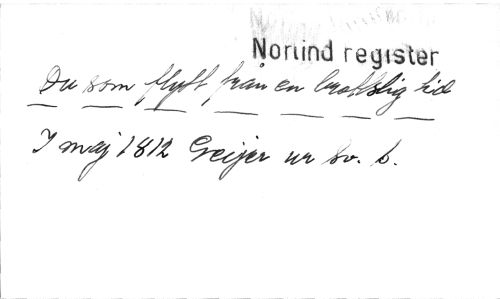 Norlind register
Du som flytt från en brottslig tid
I maj 1812 Geijer ur sv. s.